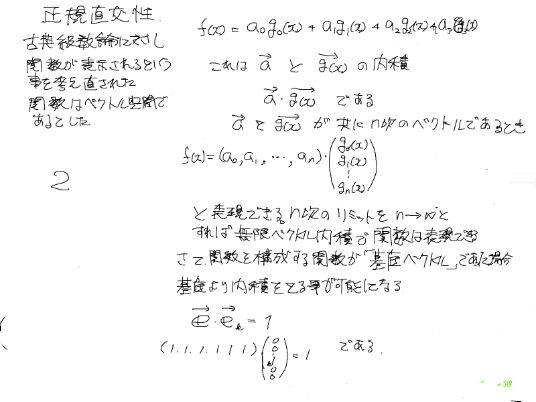 正規直交性.
古典級数論に対し
関数が表示されるという
事を考え直された
関数はベクトル空間で
あるとした
2
f(x) = a₀g₀(x) + a₁g₁(x) + a₂g₂(x) + a₃g₃(x)
これは a⃗ と g(x)⃗ の内積
a⃗・g(x)⃗ である
a⃗ と g(x)⃗ が共にn次のベクトルであるとき
f(x) = (a₀, a₁, ⋯, aₙ)・(g₀(x) g₁(x) ⋮ gₙ(x))
と表現できる。n次のリミットを n→∞と
すれば無限ベクトル内積で関数は表現できる
さて、関数を構成する関数が「基底ベクトル」であた場合
基底より内積をとる事が可能になる
e⃗・e⃗ₖ = 1
(1. 1. 1. 1. 1 1) = 1 である.